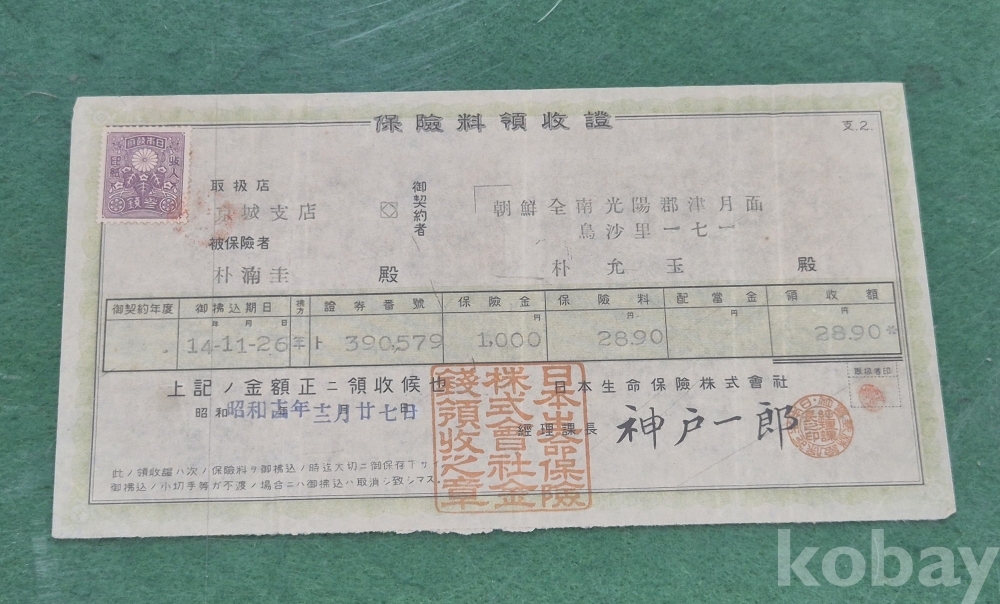 保險料領收證
支.2.
取扱店
京城支店
被保險者
朴湳圭 殿
御契約者
朝鮮全南光陽郡津月面
烏沙里一七一
朴允玉 殿
御契約年度 御拂込期日 拂方 證券番號 保險金 保險料 配當金 領收額
年 月 日 円 円 円 円
14-11-26 年 ト 390,579 1,000 28.90 28.90
上記ノ金額正ニ領收候也
日本生命保險株式會社
取扱者印
昭和 年 月 日
昭和 年十二月廿七日
經理課長 神戸一郎
日本生命保險
株式會社金
錢領收之章
此ノ領收證ハ次ノ保險料ヲ御拂込ノ時迄大切ニ御保存下サイ
御拂込ノ小切手等ガ不渡ノ場合ニハ御拂込ハ取消シ致シマス
kobay